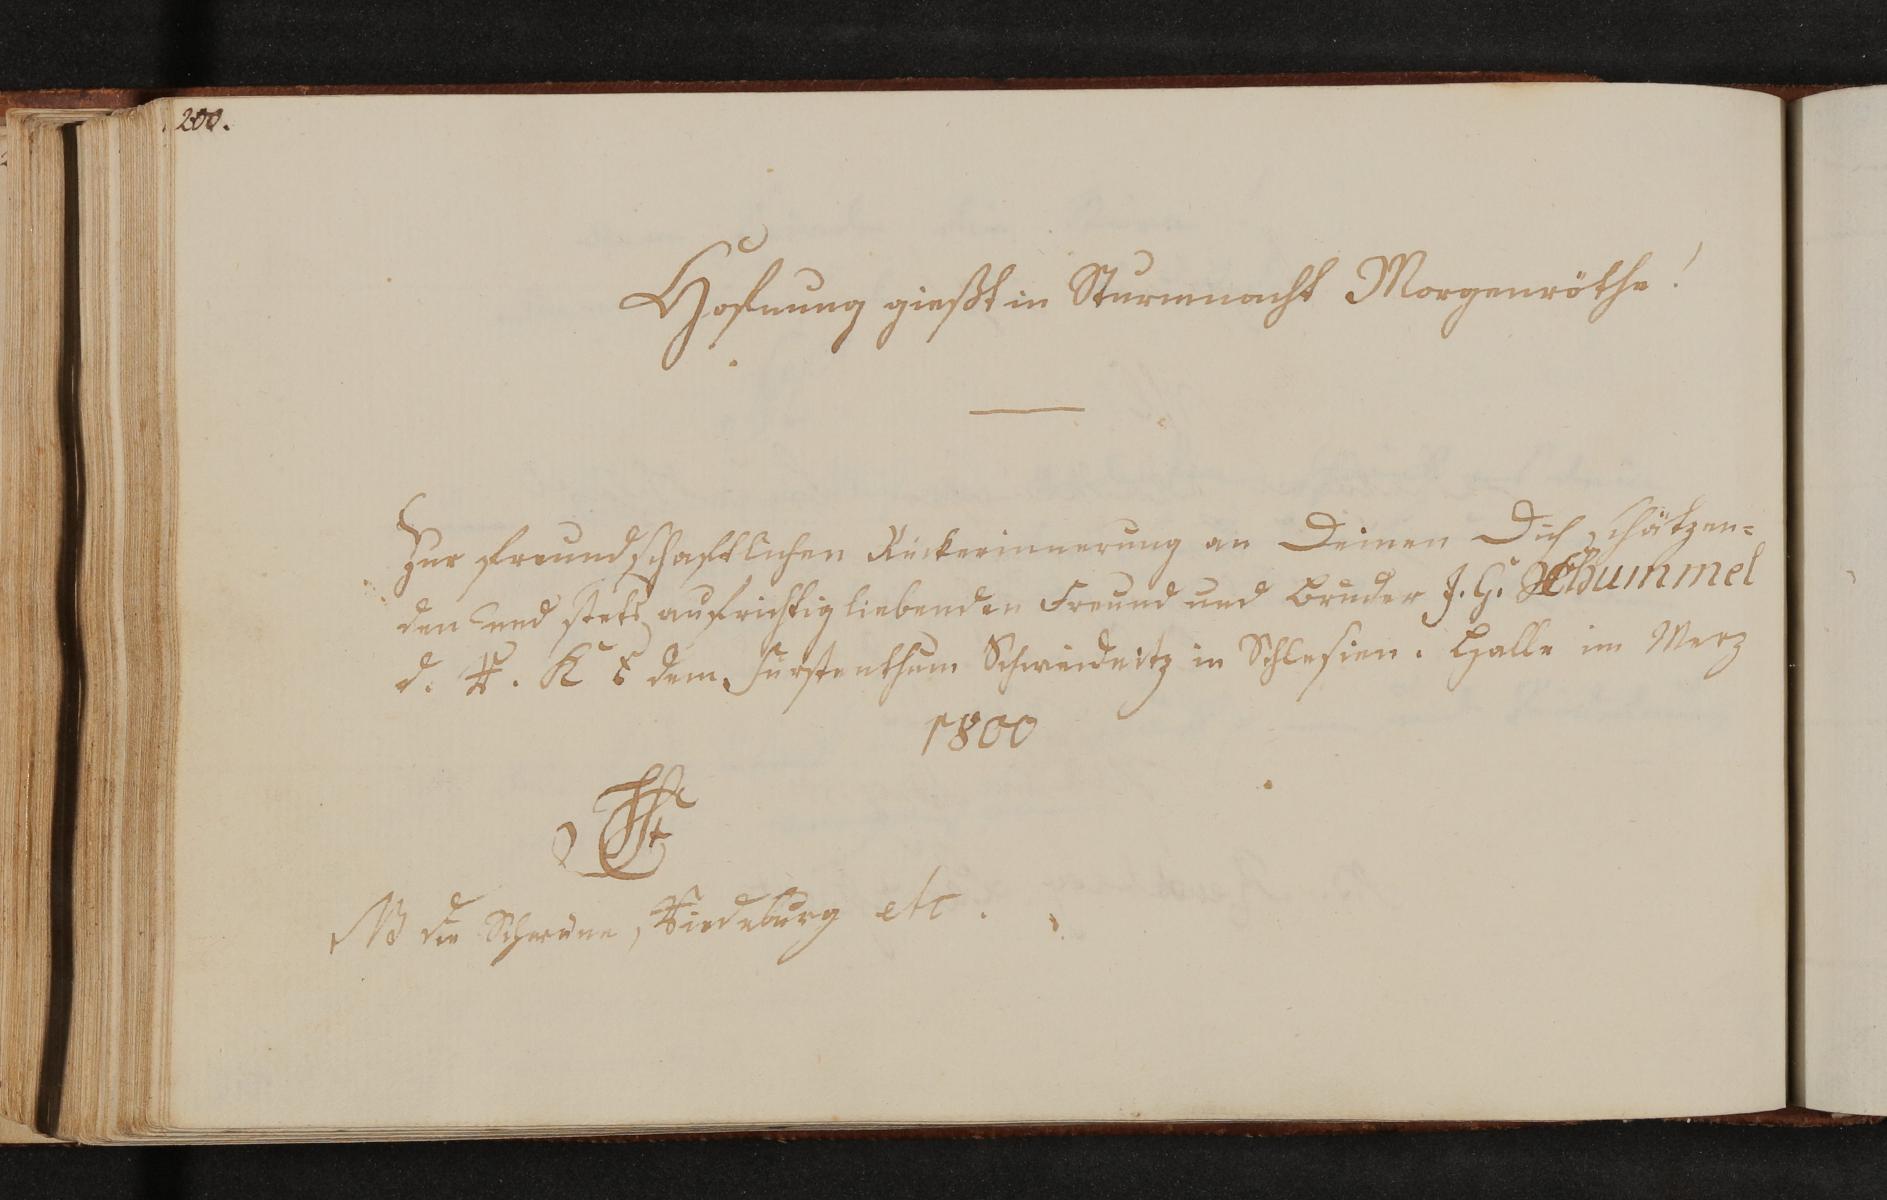 200.
Hofnung gießt in Sturmnacht Morgenröthe!
Zur freundschaftlichen Rückerinnerung an Deinen Dich schätzen=
den und stets aufrichtig liebenden Freund und Bruder J. G. Schummel
d. K dem Fürstenthum Schweidnitz in Schlesien. Halle im Merz
1800
NB die Scheune, Diedeburg etc.